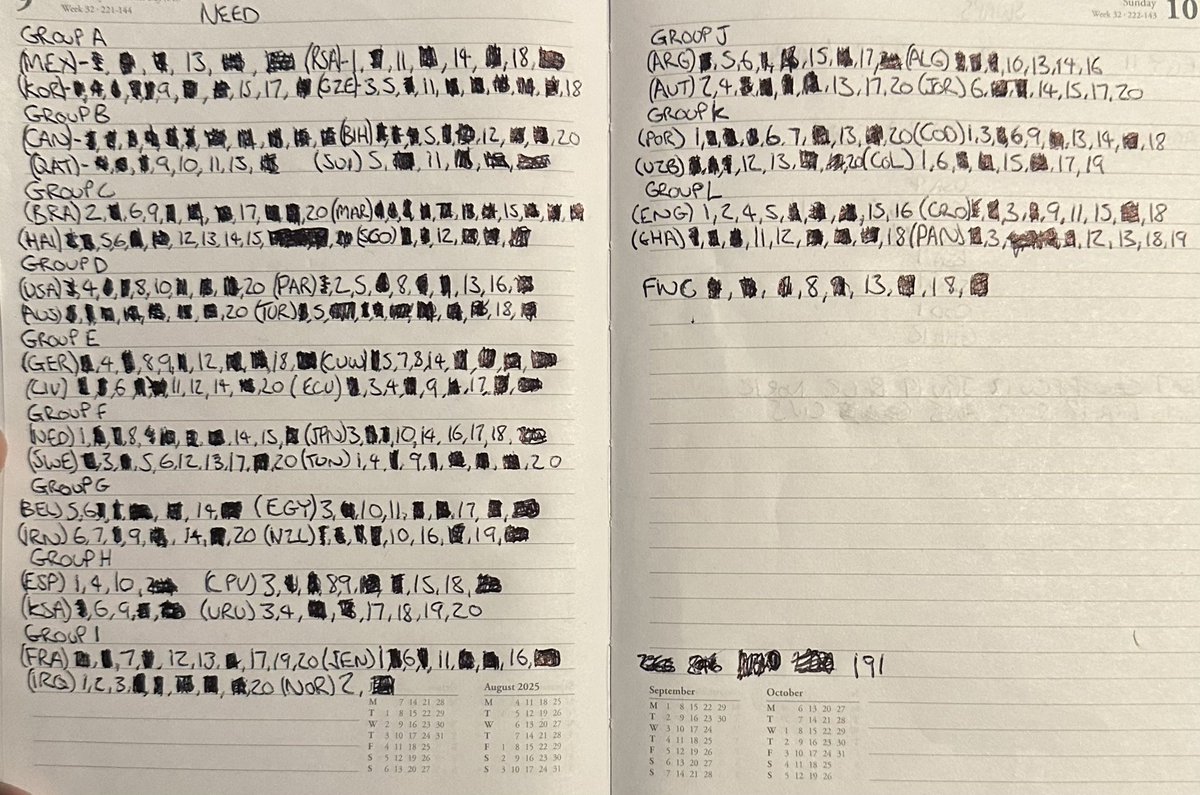 9
Week 32 · 221-144
NEED
GROUP A
(MEX)- 13, (RSA)-1, 11, 14, 18,
(KOR)- 9, 15, 17, (CZE)-3,5, 11, 18
GROUP B
(CAN)- (BIH) 5, 12, 20
(QAT)- 9, 10, 11, 15, (SUI) 5, 11,
GROUP C
(BRA) 2, 6,9, 17, 20 (MAR) 15,
(HAI) 5,6, 12,13,14,15, (SCO) 12,
GROUP D
(USA) 4, 8,10, 20 (PAR) 2,5, 8, 13,16,
AUS) 20 (TUR) 5, 18,
GROUP E
(GER) 4, 8,9, 12, 18, (CUW) 5,7,8,14,
(CIV) 6, 11,12,14, 20 (ECU) 3,4, 9, 17,
GROUP F
(NED) 1, 8, 14, 15, (JPN)3, 10,14, 16,17,18,
(SWE) 3, 5,6,12,13,17, 20 (TUN) 1,4, 9, 20
GROUP G
BEL) 5,6, 14, (EGY) 3, 10,11, 17,
(IRN) 6,7, 9, 14, 20 (NZL) 10, 16, 19,
GROUP H
(ESP) 1,4,10, (CPV) 3, 8,9, 15,18,
(KSA) 6,9, (URU) 3,4, 17,18,19,20
GROUP I
(FRA) 7, 12,13, 17,19,20 (SEN) 1, 6, 11, 16,
(IRQ) 1,2,3, 20 (NOR) 2,
August 2025
M 7 14 21 28
T 1 8 15 22 29
W 2 9 16 23 30
T 3 10 17 24 31
F 4 11 18 25
S 5 12 19 26
S 6 13 20 27
M 4 11 18 25
T 5 12 19 26
W 6 13 20 27
T 7 14 21 28
F 1 8 15 22 29
S 2 9 16 23 30
S 3 10 17 24 31
Sunday 10
Week 32 · 222-143
GROUP J
(ARG) 5,6, 15, 17, (ALG) 10,13,14,16
(AUT) 2,4, 13,17,20 (JOR) 6, 14,15,17,20
GROUP K
(POR) 1, 6,7, 13, 20 (COD) 1,3, 6,9, 13,14, 18
(UZB) 12,13, 20 (COL) 1,6, 15, 17,19
GROUP L
(ENG) 1,2,4,5, 15,16 (CRO) 3, 9,11,15, 18
(GHA) 11,12, 18 (PAN) 3, 12,13,18,19
FWC 8, 13, 18,
191
September
M 1 8 15 22 29
T 2 9 16 23 30
W 3 10 17 24
T 4 11 18 25
F 5 12 19 26
S 6 13 20 27
S 7 14 21 28
October
M 6 13 20 27
T 7 14 21 28
W 1 8 15 22 29
T 2 9 16 23 30
F 3 10 17 24 31
S 4 11 18 25
S 5 12 19 26